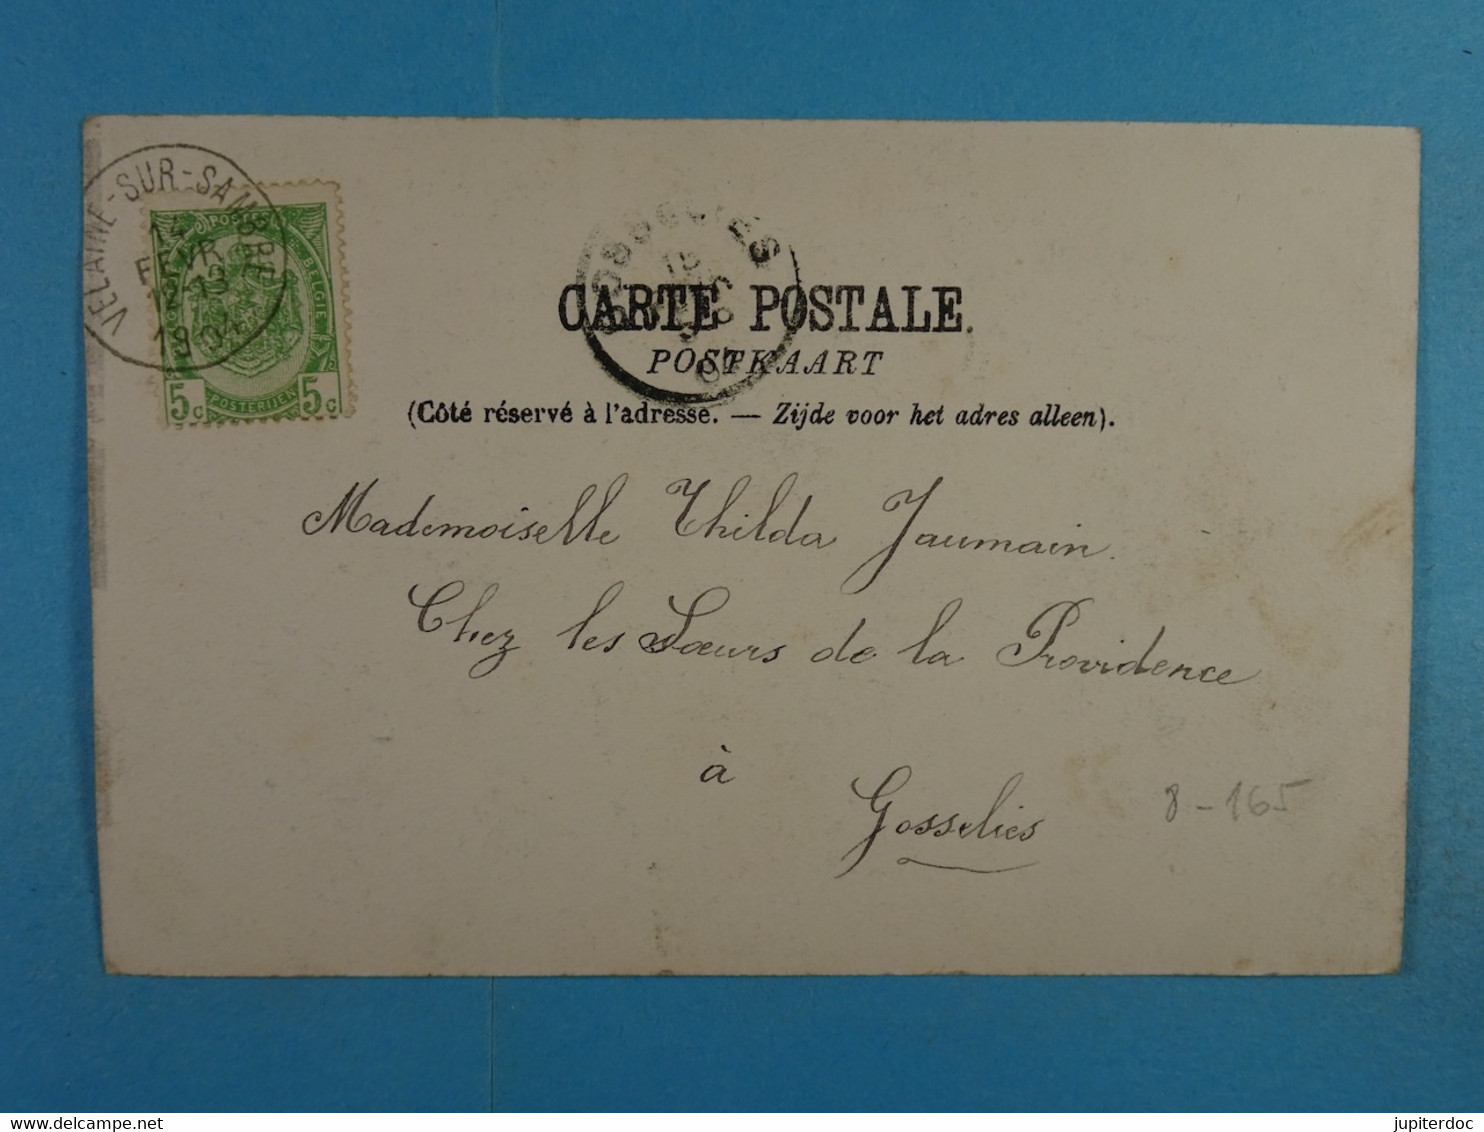 VELAINE-SUR-SAMBRE
14
FEVR
12-13
1904
POSTES
BELGIQUE
BELGIE
5c
5c
POSTERIJEN
GOSSELIES
15
CARTE POSTALE.
POSTKAART
(Côté réservé à l'adresse. — Zijde voor het adres alleen).
Mademoiselle Thilda Jaumain.
Chez les Sœurs de la Providence
à
Gosselies
8-165
jupiterdoc